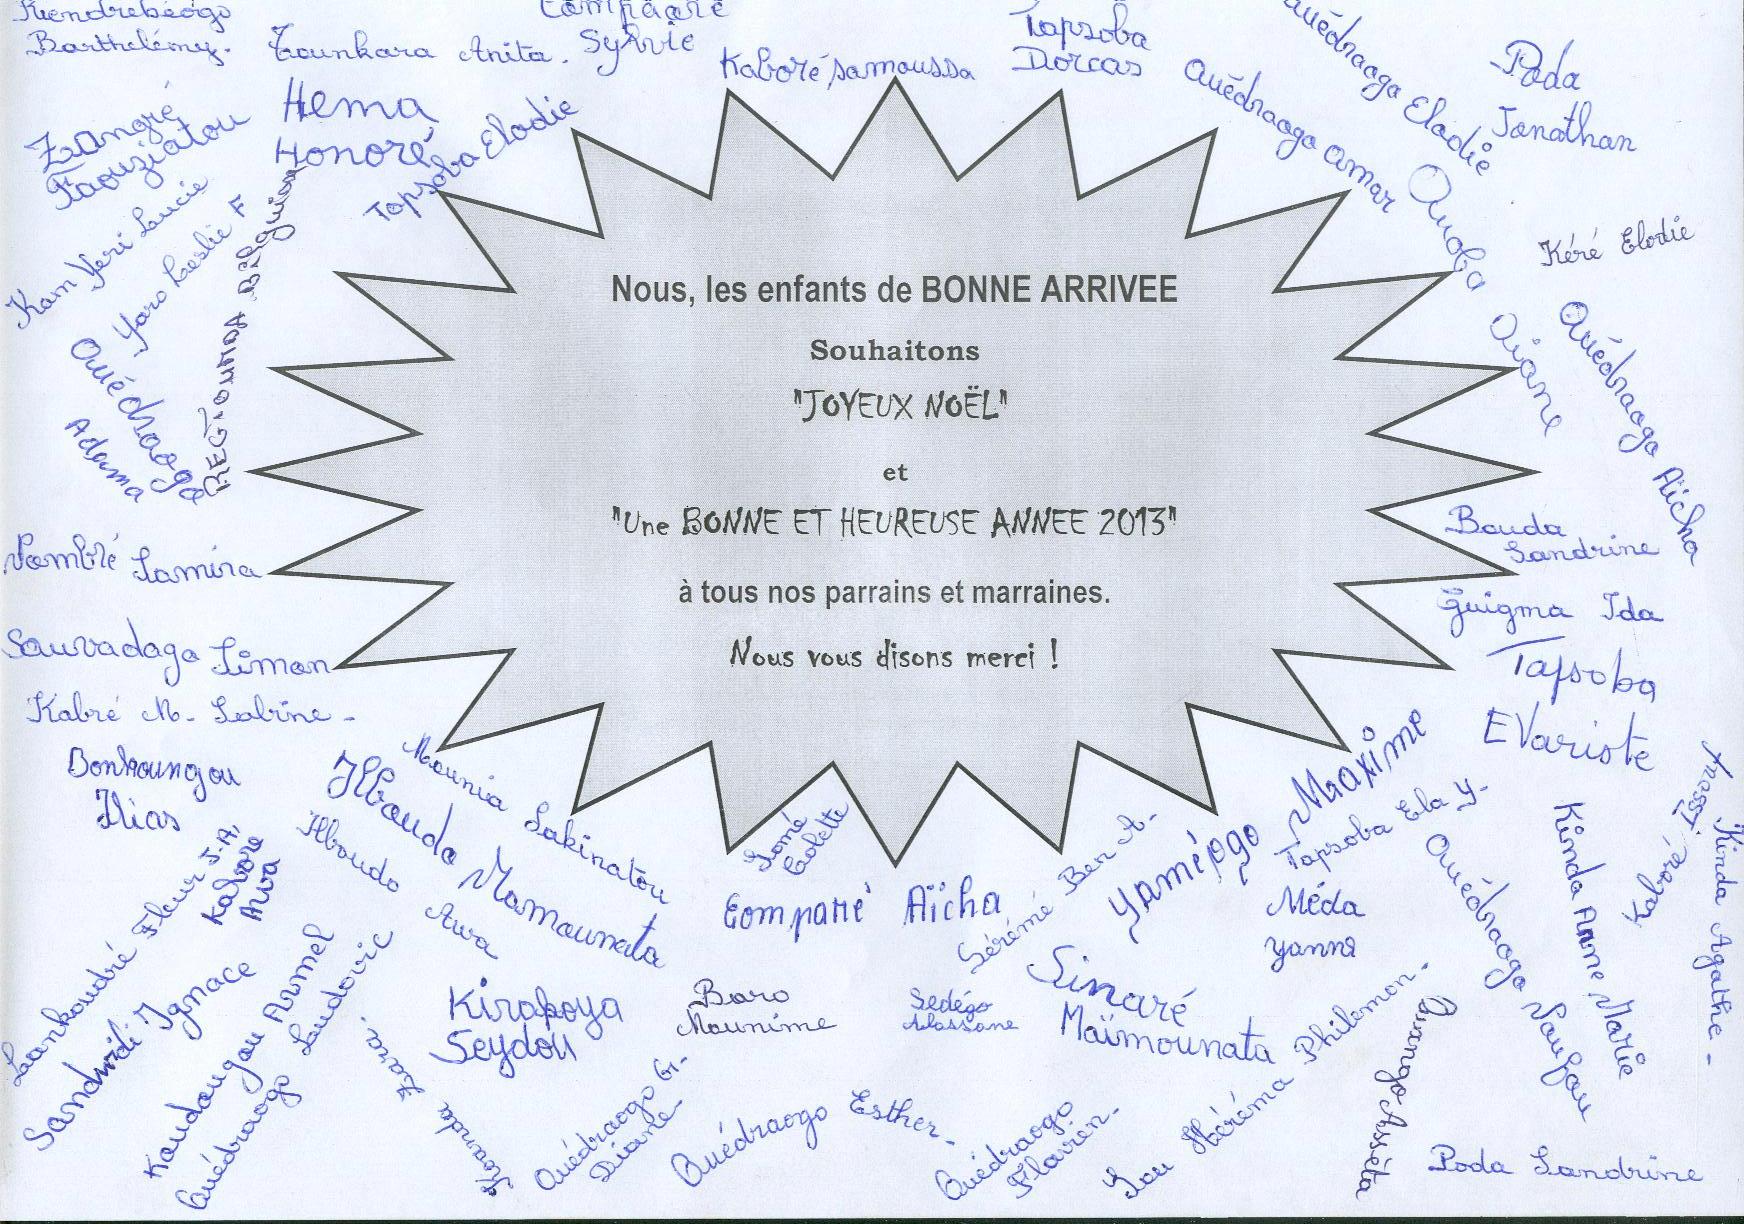 Kiendrebéogo
Barthélémy.
Tounkara Anita.
Compaoré
Sylvie
Kaboré Samoussa
Tapsoba
Dorcas
Ouédraogo Elodie
Ouédraogo Omar
Poda
Jonathan
Zangré
Faouziatou
Hema
Honoré
Tapsoba Elodie
Kam Yeri Lucie
Yaro Leslie F
Ouoba Diane
Kéré Elodie
Ouédraogo Aïcha
Ouédraogo
Adama
Nous, les enfants de BONNE ARRIVEE
Souhaitons
"JOYEUX NOËL"
et
"Une BONNE ET HEUREUSE ANNEE 2013"
à tous nos parrains et marraines.
Nous vous disons merci !
Bouda
Sandrine
Guigma Ida
Tapsoba
EVariste
Nombré Samira
Sawadogo Simon
Kabré M. Sabrine -
Bonkoungou
Ilias
Mounia Sakinatou
Ilboudo Mamounata
Ilboudo Awa
Kabore
Awa
Lankoandré Fleur J.A,
Sandwidi Ignace
Koudougou Armel
Ouédraogo Ludovic
Somé
Colette
Compaoré Aïcha
Sérémé Ben A.
Yaméogo Maxime
Tapsoba Ela Y.
Méda
Yanna
Ouédraogo Naufou
Kinda Anne Marie
Kaboré Issouf
Kinda Agathe -
Kirakoya
Seydou
Baro
Mounime
Sedégo
Alassane
Sinaré
Maïmounata
Sou Héréma Philemon.
Koanda Zara.
Ouédraogo G.
Diane -
Ouédraogo Esther -
Ouédraogo
Flavien -
Poda Sandrine